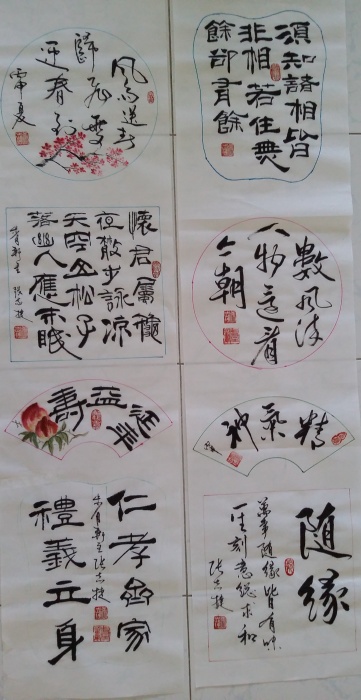 須知諸相皆
非相若住無
餘卻有餘
風雨送春
歸飛雪
迎春到
數風流
人物還看
今朝
懷君屬穐
夜散步詠涼
天空山松子
落幽人應未眠
延年
益壽
精氣神
隨緣
萬事隨緣皆有味
一生刻意總求和
張志捷
仁孝齊家
禮義立身